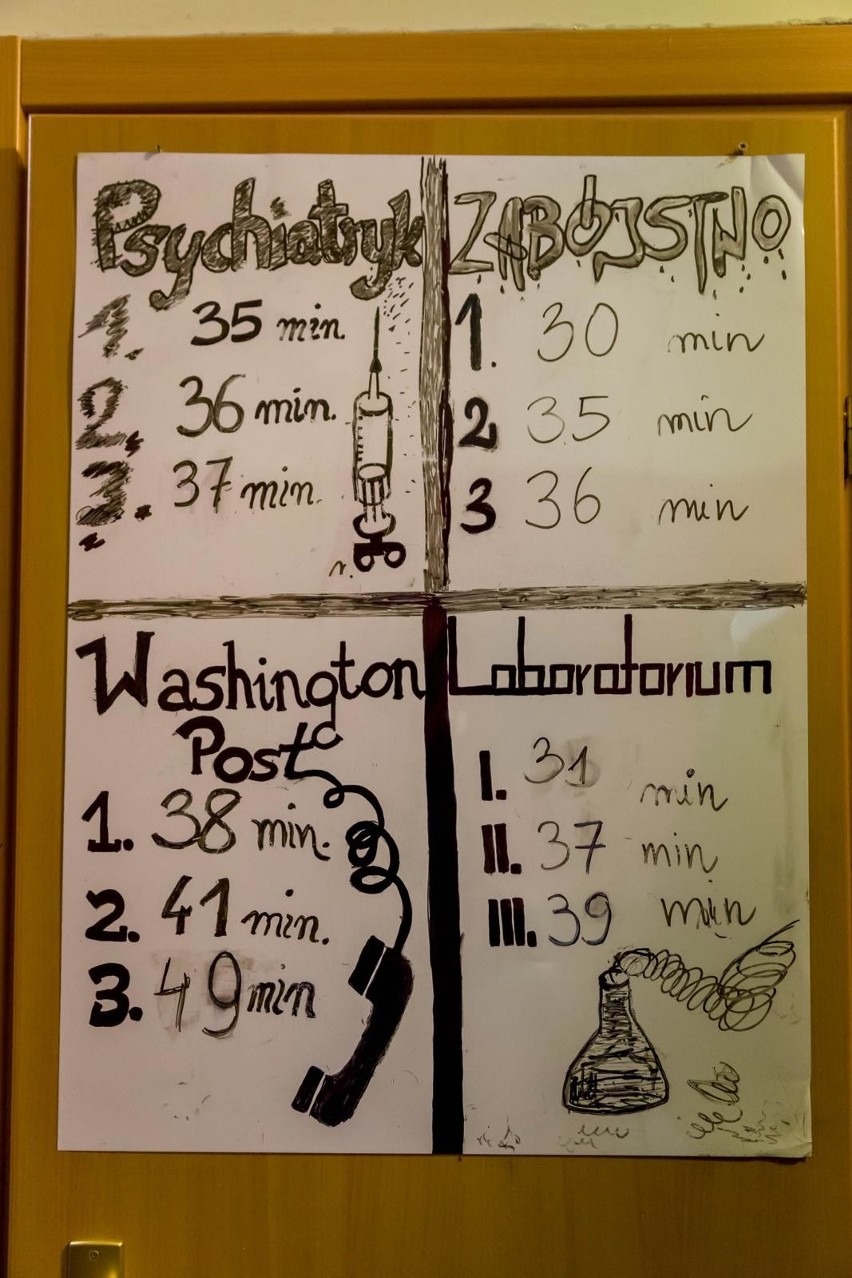 Psychiatryk
1. 35 min.
2. 36 min.
3. 37 min.
ZABÓJSTWO
1. 30 min
2 35 min
3 36 min
Washington
Post
1. 38 min.
2. 41 min.
3. 49 min
Laboratorium
I. 31 min
II. 37 min
III. 39 min